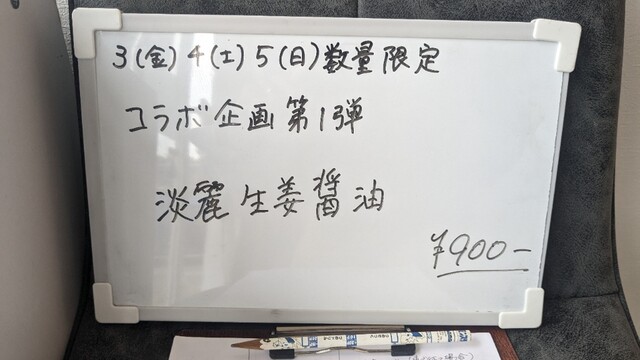 3(金)4(土)5(日)数量限定
コラボ企画第1弾
淡麗生姜醤油
¥900-